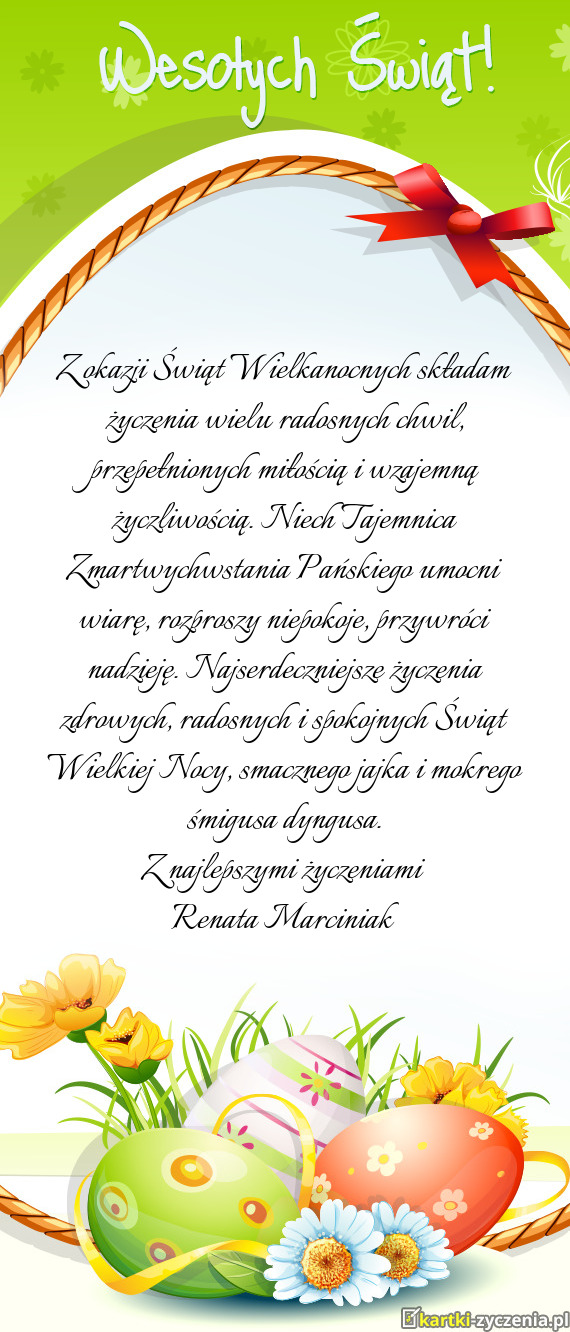 Wesołych Świąt!
Z okazji Świąt Wielkanocnych składam
życzenia wielu radosnych chwil,
przepełnionych miłością i wzajemną
życzliwością. Niech Tajemnica
Zmartwychwstania Pańskiego umocni
wiarę, rozproszy niepokoje, przywróci
nadzieję. Najserdeczniejsze życzenia
zdrowych, radosnych i spokojnych Świąt
Wielkiej Nocy, smacznego jajka i mokrego
śmigusa dyngusa.
Z najlepszymi życzeniami
Renata Marciniak
kartki-zyczenia.pl